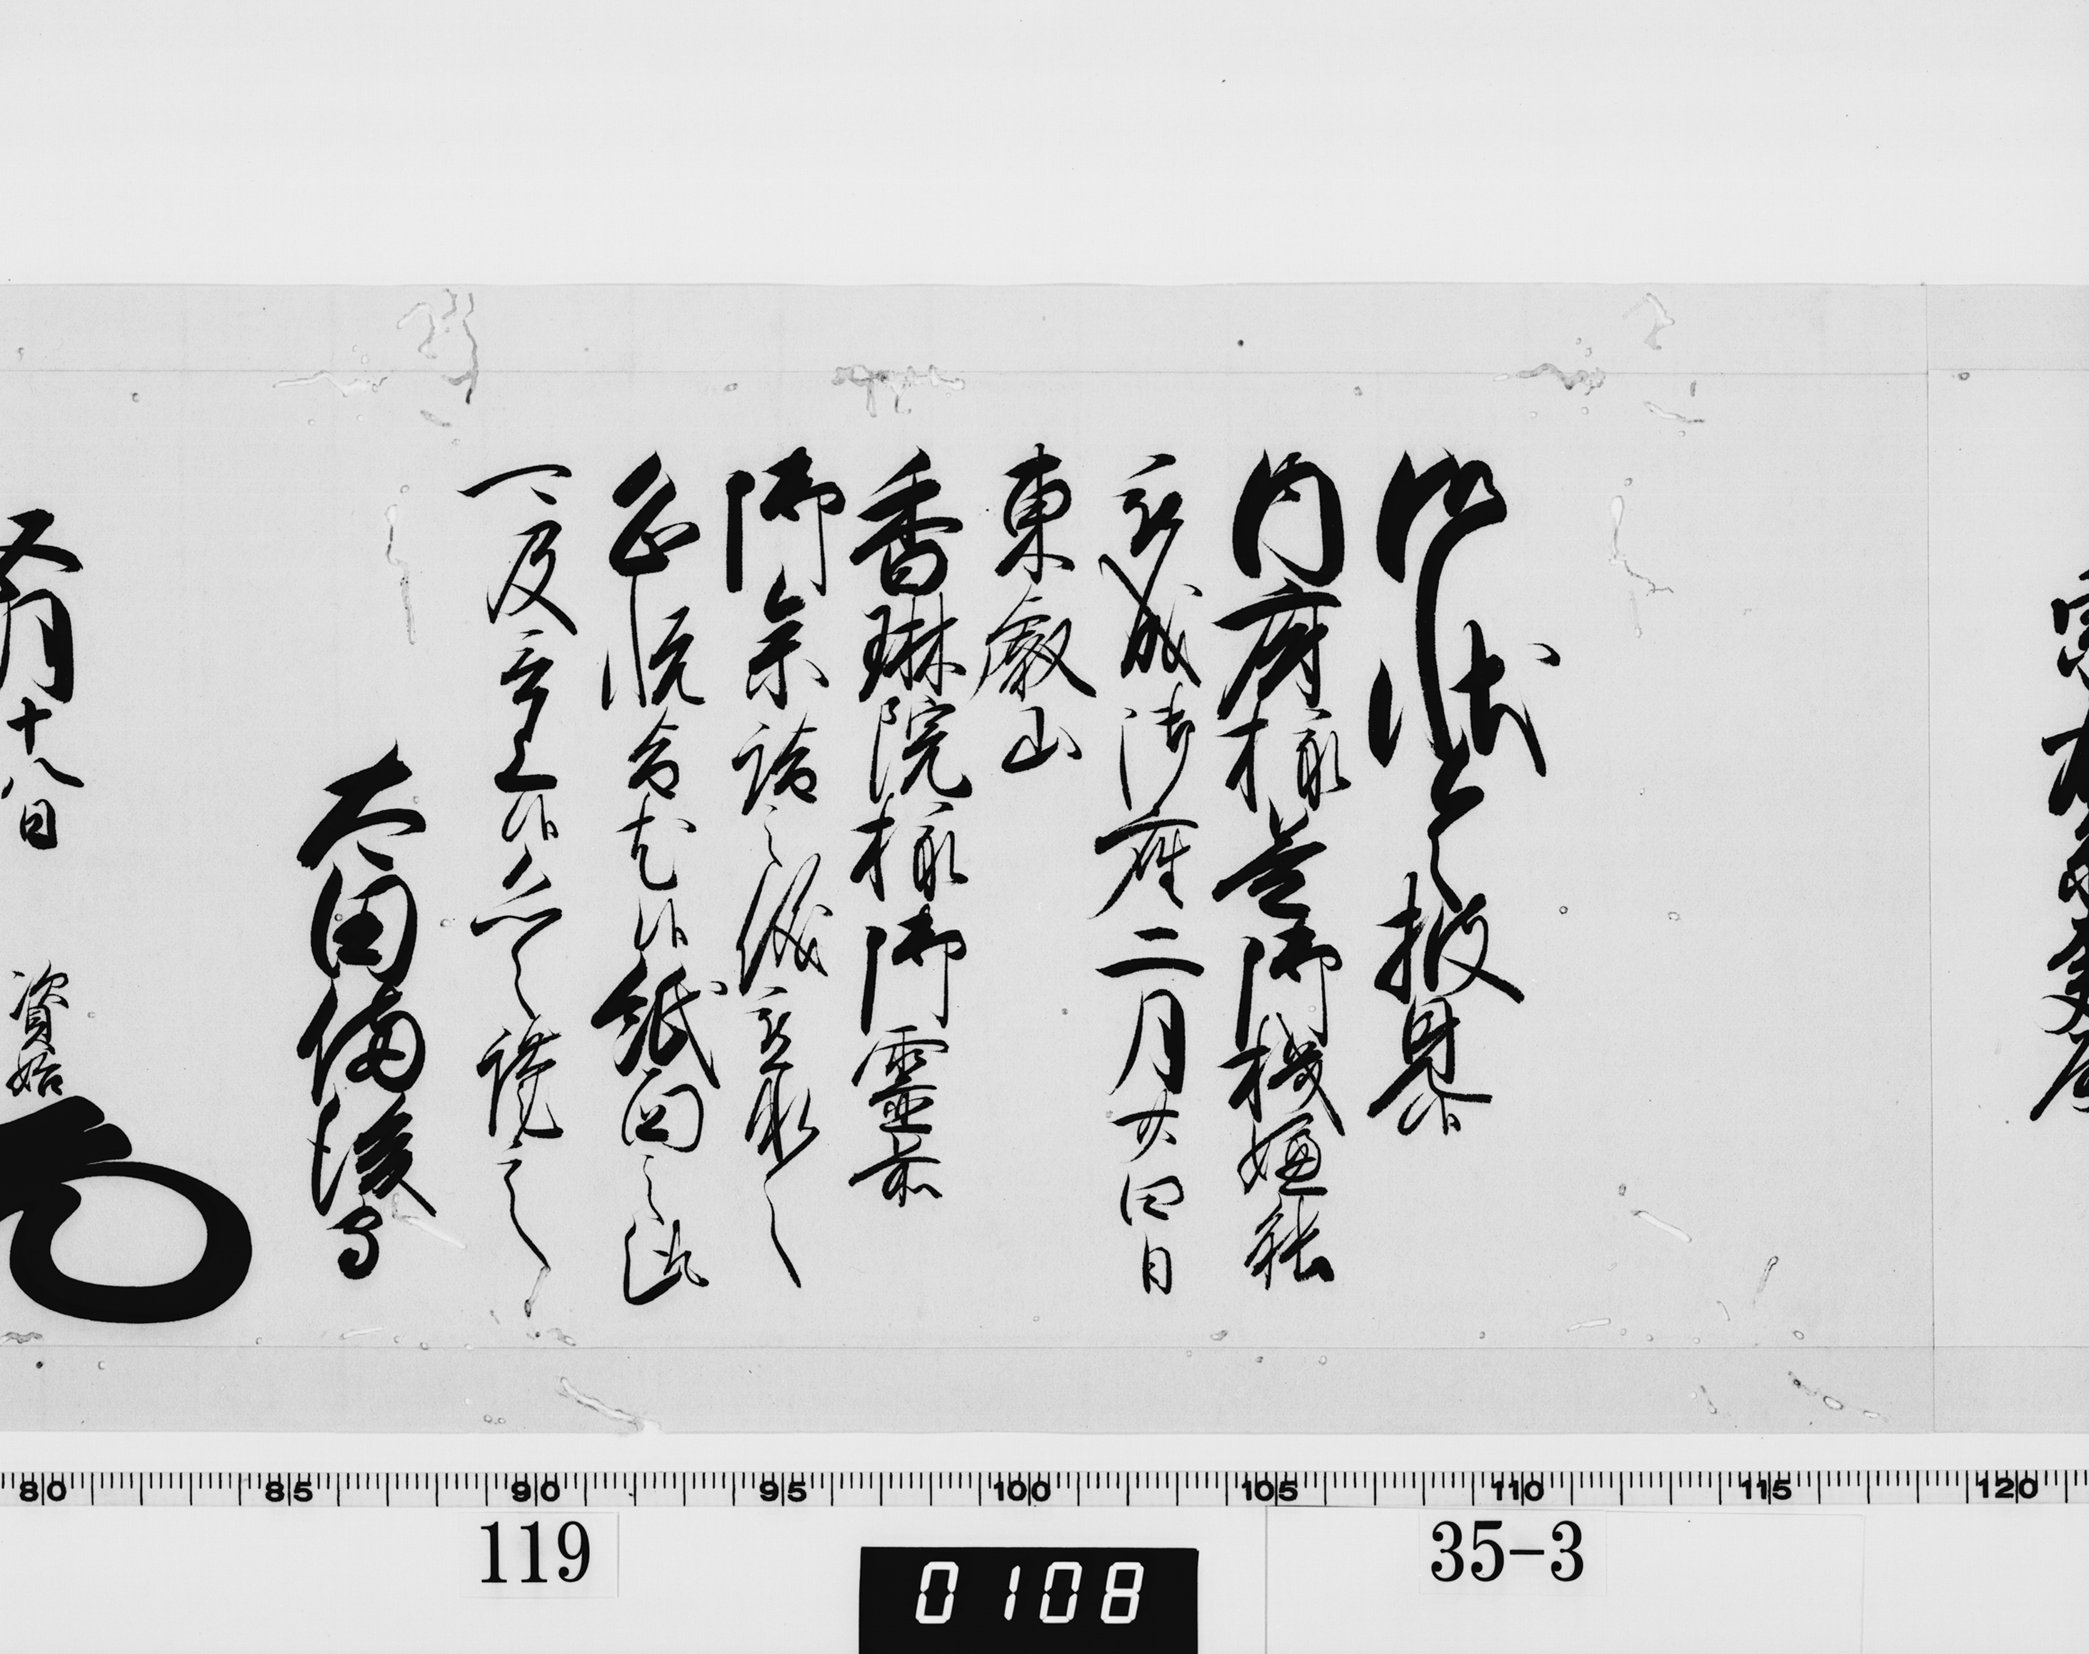 御状令披見候
内府様益御機嫌能
被成御座二月廿四日
東叡山
香琳院様御靈前
御参詣之儀被承之
恐悦旨尤候紙面之趣
可及言上候恐々謹言
太田備後守
五月十八日 資始
80 85 90 95 100 105 110 115 120
119 35-3
0108